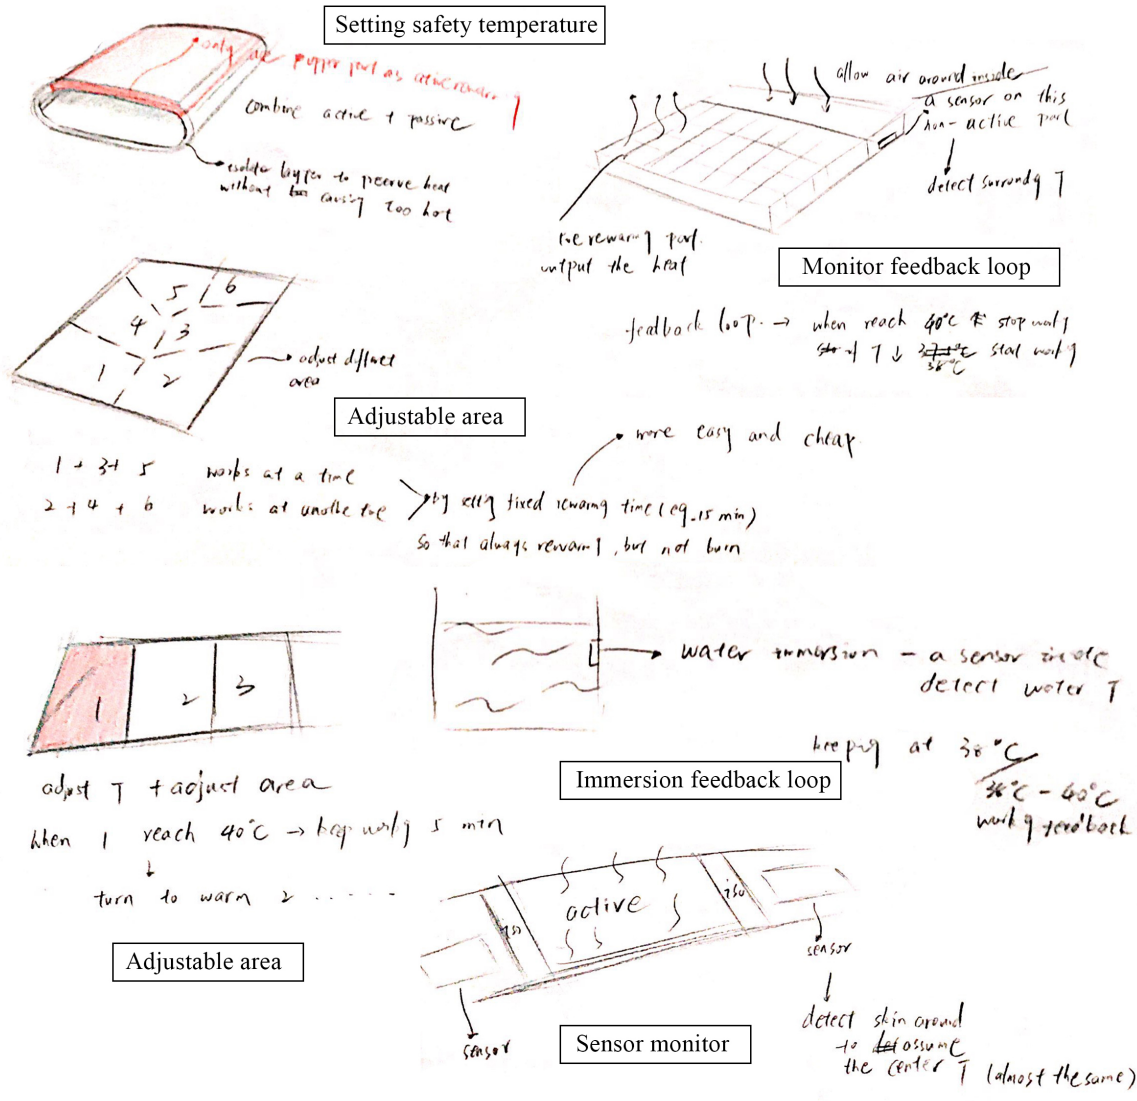 Setting safety temperature
only upper part as active rewarming
combine active + passive
layer to preserve heat
without causing too hot
allow air around inside
a sensor on this
non-active part
detect surroundg T
the rewarmg part.
output the heat
Monitor feedback loop
feedback loop. → when reach 40°C stop workg
T ↓ 38°C start workg
5 6
4 3
1 2
adjust different
area
Adjustable area
1 + 3 + 5 works at a time
2 + 4 + 6 works at another time
more easy and cheap.
by settig fixed rewarmg time (eg. 15 min)
so that always rewarm, but not burn
1 2 3
adjust T + adjust area
when 1 reach 40°C → keep workg 5 min
↓
turn to warm 2 ......
Adjustable area
water immersion - a sensor inside
detect water T
keepig at 38°C
38°C - 40°C
workg feedback
Immersion feedback loop
iso active iso
sensor
sensor
detect skin around
to assume
the center T (almost the same)
Sensor monitor